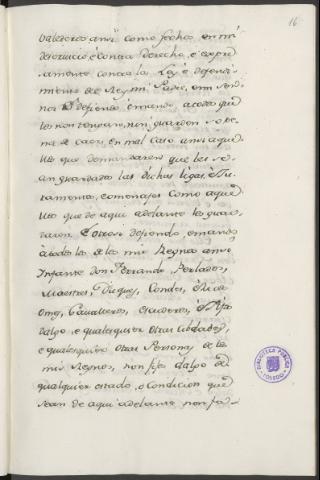 16
valederos ansi como fechos en mi
deservicio é contra derecho, é expre
samente contra la Ley é defendi
miento del Rey mi Padre, emi Señ
nor é defiendo é mando atodos que
los non tengan, nin guarden so pe
na de caer en mal caso ansi aque
llos que demandaren que les se
an guardadas las dichas ligas, é Ju
ramentos, é omenajes como aque
llos que de aqui adelante los guar
daren. E otrosi defiendo emando
átodos los de los mis Regnos ansi
Infante don Ferrando, Perlados,
Maestres, Duques, Condes, é Ricos
omes, Cavalleros, Escuderos, é Fijos
dalgo, e qualesquier otras Cibdades,
e qualesquier otras Personas de los
mis Regnos, non fijos dalgo de
qualquier estado, o Condicion que
sean de aqui adelante non fa-
BIBLIOTECA PÚBLICA
TOLEDO